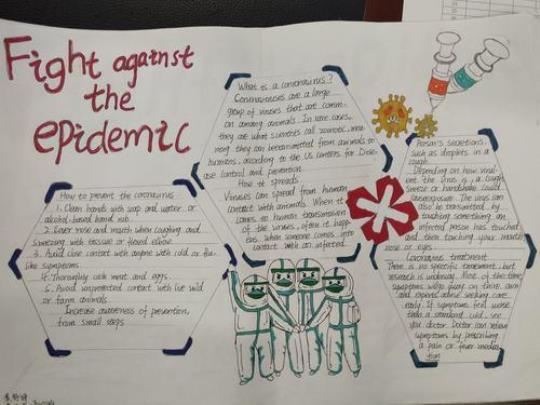 Fight against
the
epidemic
How to prevent the coronavirus
1. Clean hands with soap and water or
alcohol-based hand rub
2. Cover nose and mouth when coughing and
sneezing with tissue or flexed elbow
3. Avoid close contact with anyone with cold or flu-
like symptoms
4. Thoroughly cook meat and eggs
5. Avoid unprotected contact with live wild
or farm animals
Increase awareness of prevention,
from small steps
What is a coronavirus?
Coronaviruses are a large
group of viruses that are comm-
on among animals. In rare cases,
they are what scientists call
they can be transmitted from animals to
humens, according to the US Centers for Dise-
ase Control and prevention
How it spreads
Viruses can spread from human
contact with animals. When it
comes to human transmission
of the viruses, often it happ-
ens when someone comes into
contact with an infected
Person's secretions,
such as droplets in a
cough.
Depending on how virul-
ent the virus is, a cough,
sneeze or handshake could
cause exposure. The virus can
also be transmitted by
touching something an
infected person has touched
and then touching your mouth,
nose or eyes.
Coronavirus treatment
There is no specific treatment, but
research is underway. Most of the time,
symptoms will go away on their own
and experts advise seeking care
early. If symptoms feel worse
than a standard cold, see
you doctor. Doctor can relieve
symptoms by prescribing
a pain or fever medica-
tion